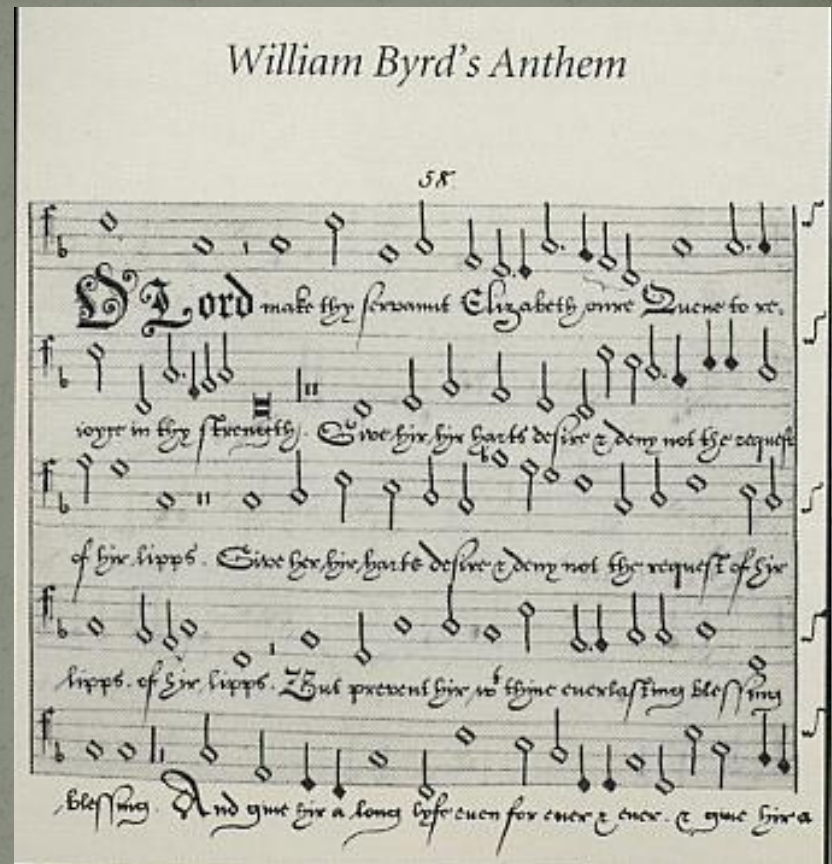 William Byrd's Anthem
58
O Lord make thy servannt Elizabeth oure Quene to re,
ioyce in thy strength. Give hir hir harts desire & deny not the request
of hir lipps. Give her hir harts desire & deny not the request of hir
lipps. of hir lipps. But prevent hir wt thine everlasting blessing
blessing. And give hir a long lyfe even for ever & ever. & give hir a